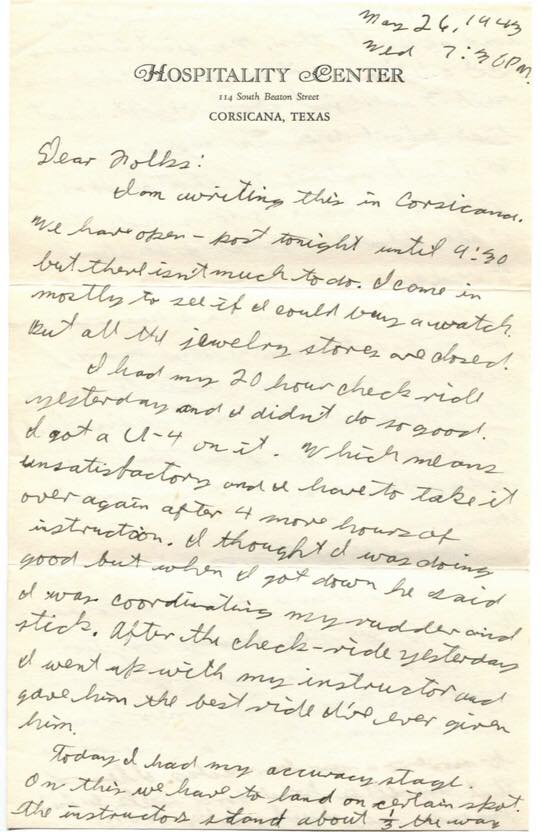 May 26, 1943
Wed 7:30 P.M.
HOSPITALITY CENTER
114 South Beaton Street
CORSICANA, TEXAS
Dear Folks:
I am writing this in Corsicana.
We have open-post tonight until 9:30
but there isn't much to do. I came in
mostly to see if I could buy a watch.
But all the jewelry stores are closed.
I had my 20 hour check ride
yesterday and I didn't do so good.
I got a U-4 on it. Which means
unsatisfactory and I have to take it
over again after 4 more hours of
instruction. I thought I was doing
good but when I got down he said
I was coordinating my rudder and
stick. After the check-ride yesterday
I went up with my instructor and
gave him the best ride I've ever given
him.
Today I had my accuracy stage.
On this we have to land on certain spot.
The instructors stand about 1/3 the way